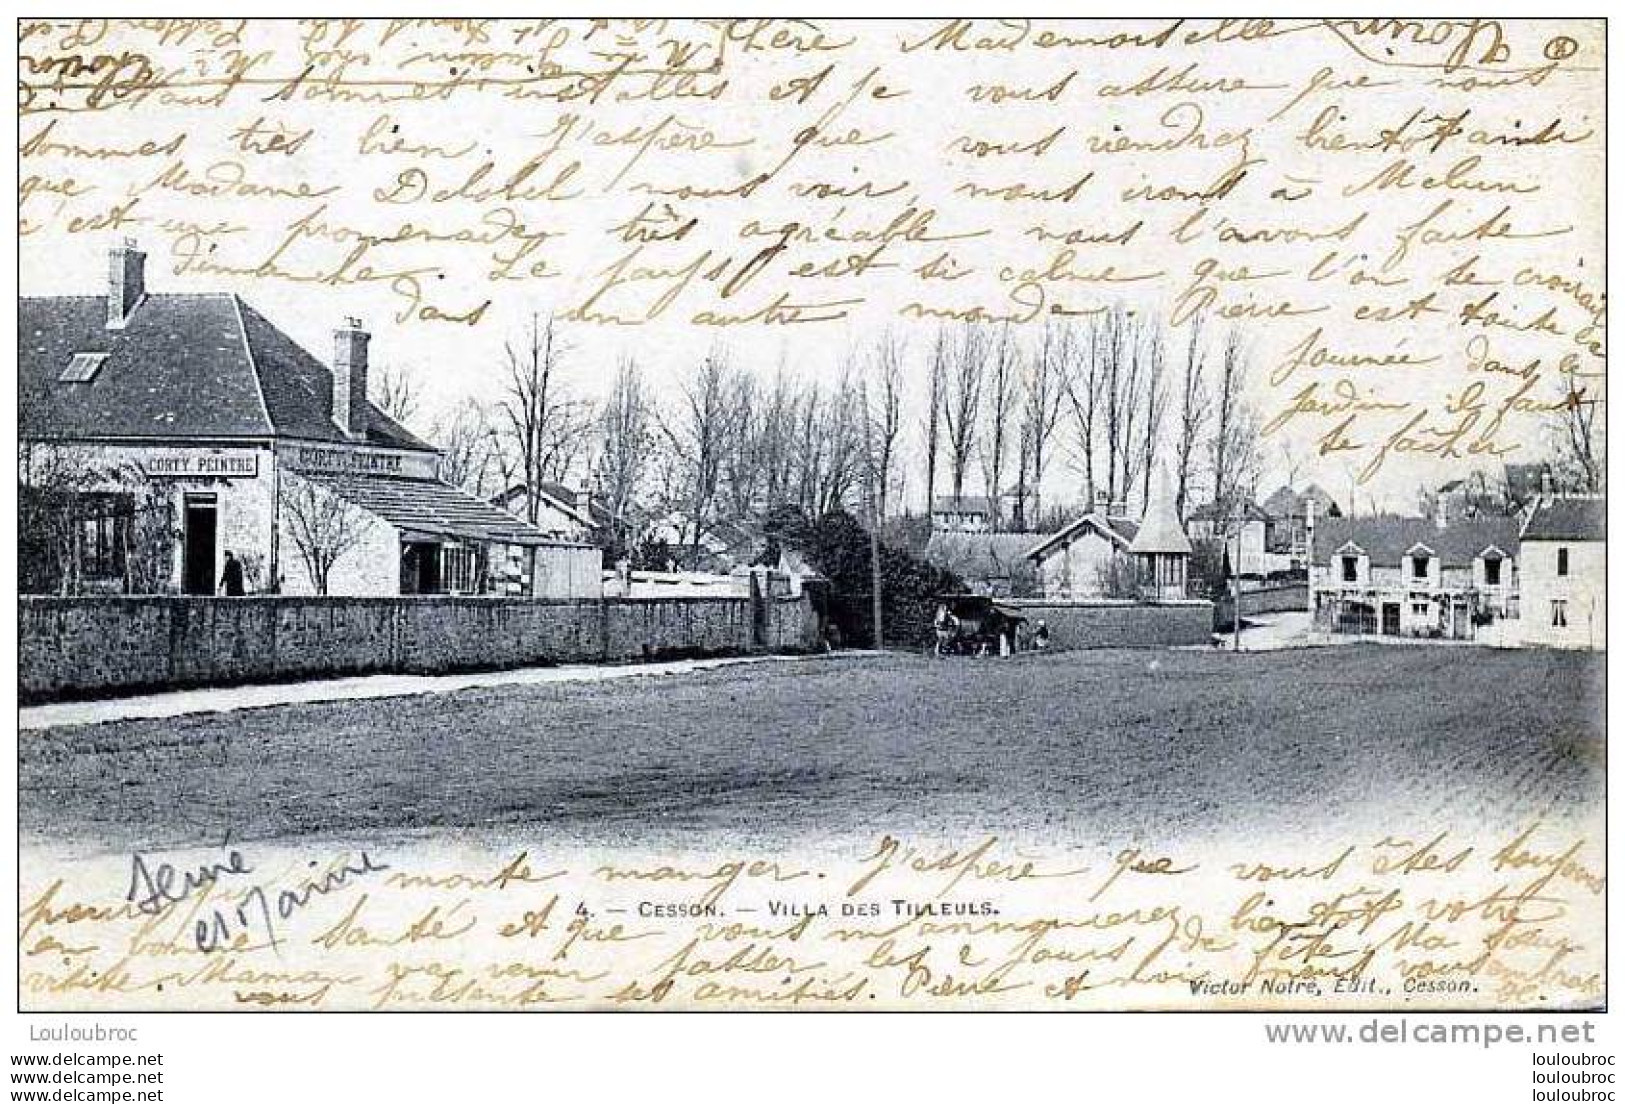 Chère Mademoiselle
Nous sommes installés et je vous assure que nous
sommes très bien. J'espère que vous viendrez bientôt ainsi
que Madame nous voir, nous irons à Melun
c'est une promenade très agréable nous l'avons faite
dimanche. Le pays est si calme que l'on se croirait
dans un autre monde. Pierre est toute la
journée dans le
jardin il faut
se fâcher
CORTY PEINTRE
CORTY PEINTRE
Seine
et Marne
pour qu'il monte manger. J'espère que vous êtes toujours
4. — CESSON. — VILLA DES TILLEULS.
en bonne santé et que vous m'annoncerez bientôt votre
visite. Maman va venir passer les 2 jours de fête, Ma sœur
vous présente ses amitiés. Pierre et moi nous vous embrassons
Victor Notre, Edit., Cesson.
Louloubroc
delcampe.net
louloubroc
louloubroc
louloubroc
www.delcampe.net
www.delcampe.net
www.delcampe.net